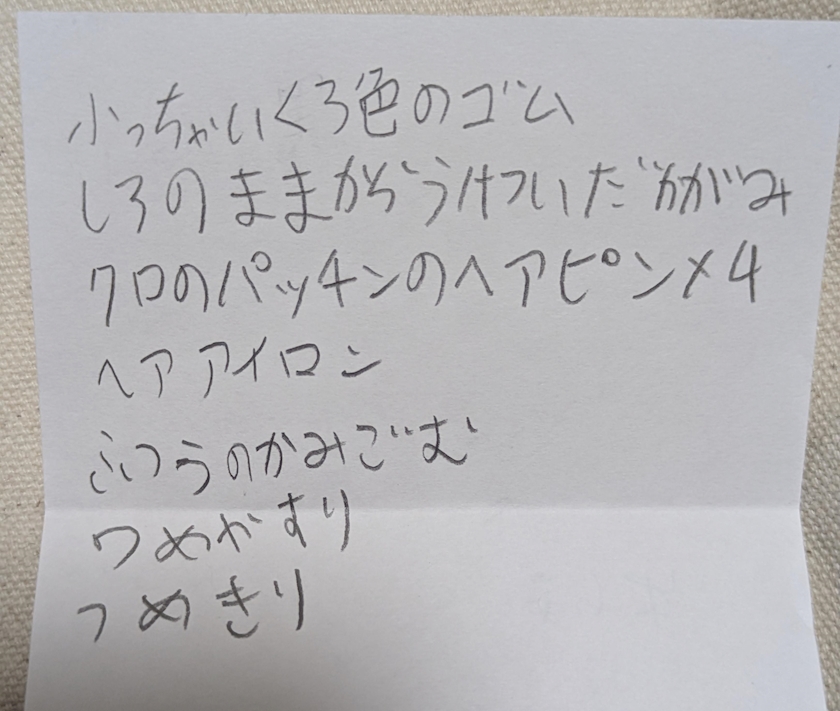 小っちゃいくろ色のゴム
しろのままからうけついだかがみ
クロのパッチンのヘアピン×4
ヘアアイロン
ふつうのかみごむ
つめやすり
つめきり